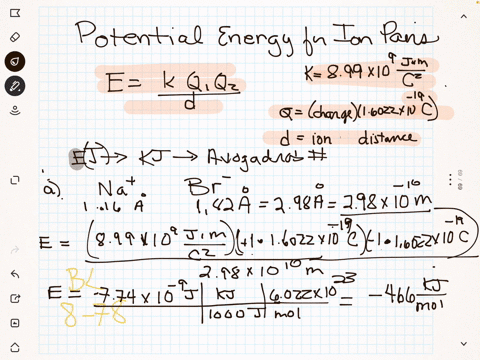 Potential Energy fn Ion Pairs
E = k Q1 Q2 / d
K = 8.99 x 10^9 J·m / C^2
Q = (charge)(1.6022 x 10^-19 C)
d = ion distance
E(J) → KJ → Avogadros #
a). Na+ Br-
1.16 Å 1.82 Å = 2.98 Å = 2.98 x 10^-10 m
E = (8.99 x 10^9 J·m / C^2)(+1·1.6022 x 10^-19 C)(-1·1.6022 x 10^-19 C)
2.98 x 10^10 m
E = -7.74 x 10^-19 J | KJ / 1000 J | 6.022 x 10^23 / mol = -466 KJ / mol
8-78